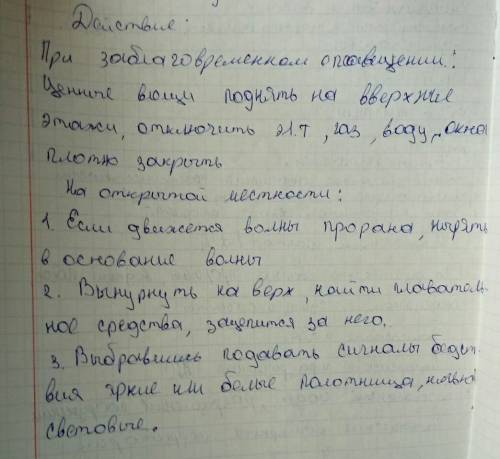 Действие:
При заблаговременном оповещении:
Ценные вещи поднять на вверхние
этажи, отключить эл.т, газ, воду, окна
плотно закрыть
На открытой местности:
1. Если движется волны прорана, нырять
в основание волны
2. Вынурнуть на верх, найти плаватель
ное средства, зацепится за него.
3. Выбравшись подавать сигналы бедст
вия яркие или белые полотнища, ночью
световые.